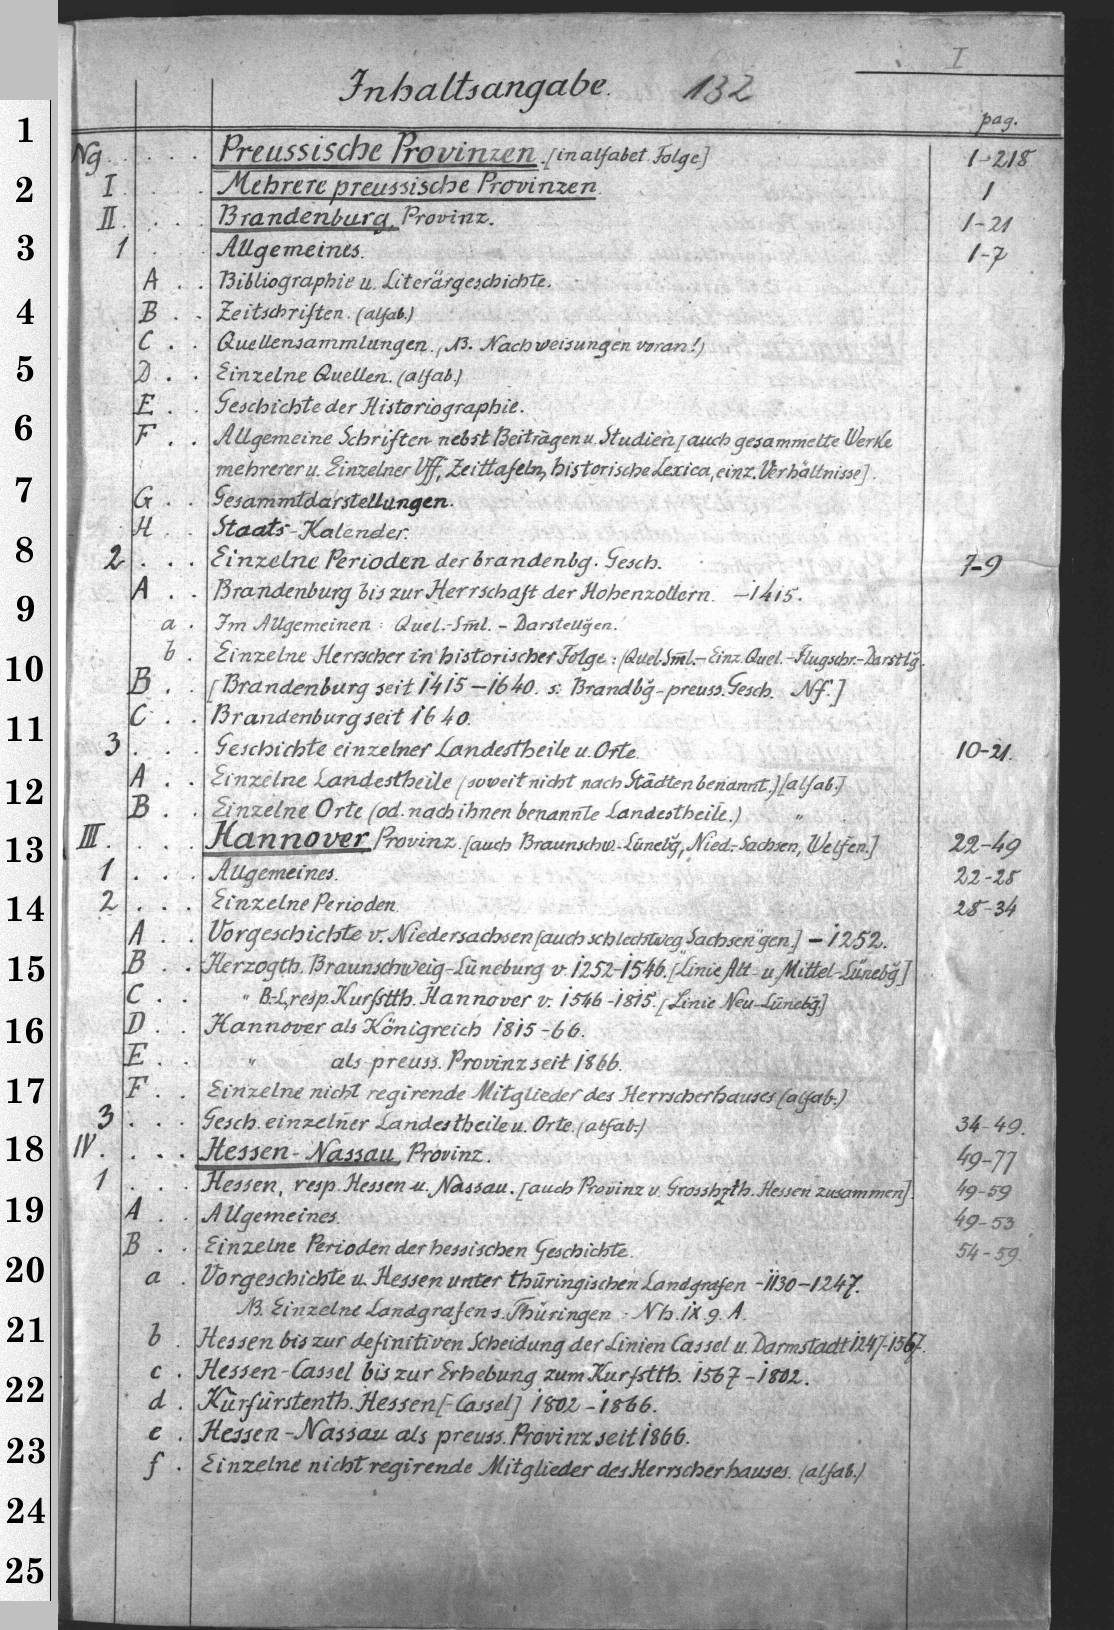 I
Inhaltsangabe. 132
pag.
Ng . . . . Preussische Provinzen. [in alfabet. Folge] 1-218
I . . . Mehrere preussische Provinzen. 1
II . . . Brandenburg, Provinz. 1-21
1 . . Allgemeines. 1-7
A . . Bibliographie u. Literärgeschichte.
B . . Zeitschriften. (alfab.)
C . . Quellensammlungen. (NB. Nachweisungen voran!)
D . . Einzelne Quellen. (alfab.)
E . . Geschichte der Historiographie.
F . . Allgemeine Schriften nebst Beiträgen u. Studien [auch gesammelte Werke
mehrerer u. Einzelner Vff, Zeittafeln, historische Lexica, einz. Verhältnisse].
G . . Gesammtdarstellungen.
H . . Staats-Kalender.
2 . . . Einzelne Perioden der brandenbg. Gesch. 7-9
A . . Brandenburg bis zur Herrschaft der Hohenzollern. -1415.
a . Im Allgemeinen: Quel.-Sml. - Darstellgen.
b . Einzelne Herrscher in historischer Folge: (Quel.Sml.-Einz.Quel.-Flugschr.-Darstlg.
B . . [Brandenburg seit 1415-1640. s. Brandbg-preuss. Gesch. Nf.]
C . . Brandenburg seit 1640.
3 . . . Geschichte einzelner Landestheile u. Orte. 10-21.
A . . Einzelne Landestheile (soweit nicht nach Städten benannt.) [alfab.]
B . . Einzelne Orte (od. nach ihnen benannte Landestheile.) "
III . . . . Hannover, Provinz. [auch Braunschw.-Lünebg, Nied.-Sachsen, Welfen.] 22-49
1 . . . Allgemeines. 22-28
2 . . . Einzelne Perioden. 28-34
A . . Vorgeschichte v. Niedersachsen [auch schlechtweg „Sachsen" gen.] -1252.
B . . Herzogth. Braunschweig-Lüneburg v. 1252-1546. [Linie Alt- u. Mittel-Lünebg]
C . . " B.-L., resp. Kurfstth. Hannover v. 1546-1815. [Linie Neu-Lünebg.]
D . . Hannover als Königreich 1815-66.
E . . " als preuss. Provinz seit 1866.
F . . Einzelne nicht regirende Mitglieder des Herrscherhauses (alfab.)
3 . . . Gesch. einzelner Landestheile u. Orte. (alfab.) 34-49.
IV . . . . Hessen-Nassau, Provinz. 49-77
1 . . . Hessen, resp. Hessen u. Nassau. [auch Provinz v. Grosshzth. Hessen zusammen]. 49-59
A . . Allgemeines. 49-53
B . . Einzelne Perioden der hessischen Geschichte. 54-59.
a . Vorgeschichte u. Hessen unter thüringischen Landgrafen -1130-1247.
NB. Einzelne Landgrafen s. Thüringen - Nh. IX. g. A.
b . Hessen bis zur definitiven Scheidung der Linien Cassel u. Darmstadt 1247-1567.
c . Hessen-Cassel bis zur Erhebung zum Kurfstth. 1567-1802.
d . Kurfürstenth. Hessen [-Cassel] 1802-1866.
e . Hessen-Nassau als preuss. Provinz seit 1866.
f . Einzelne nicht regirende Mitglieder des Herrscherhauses. (alfab.)
1
2
3
4
5
6
7
8
9
10
11
12
13
14
15
16
17
18
19
20
21
22
23
24
25